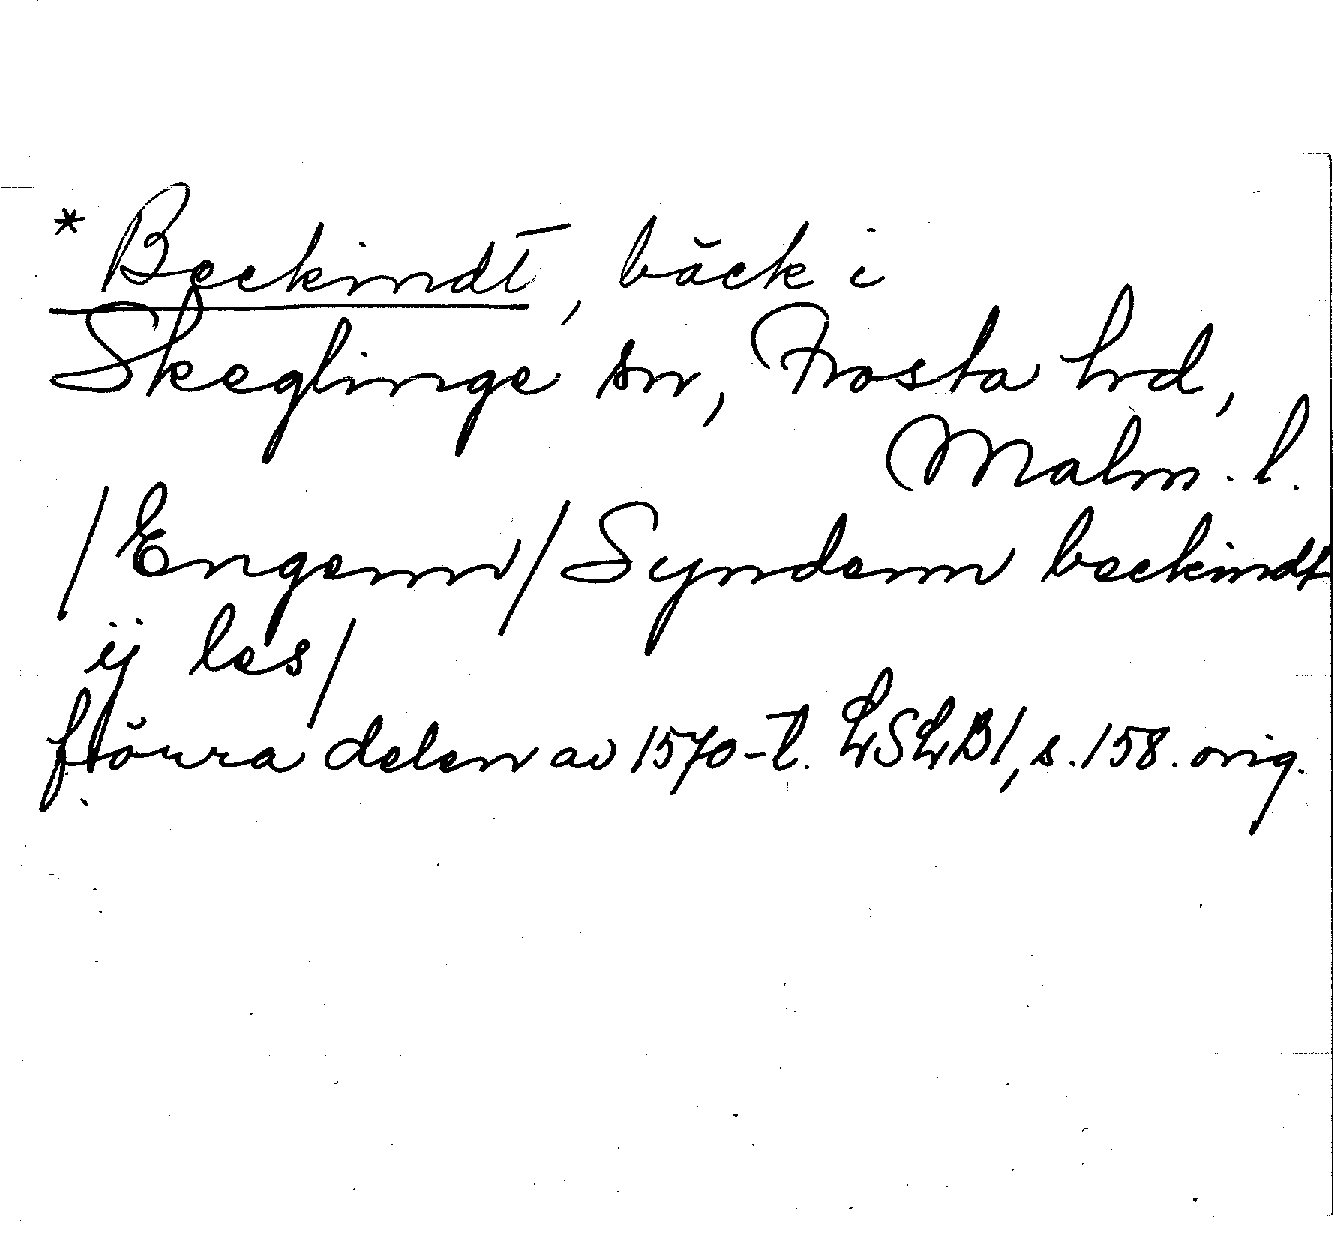 * Beckindt, bäck i
Skeglinge sn, Frosta hrd,
Malm. l.
/Engenn/ Syndenn beckindt
ij les/
f. övra delen av 1570-t. LSLB1, s. 158. orig.